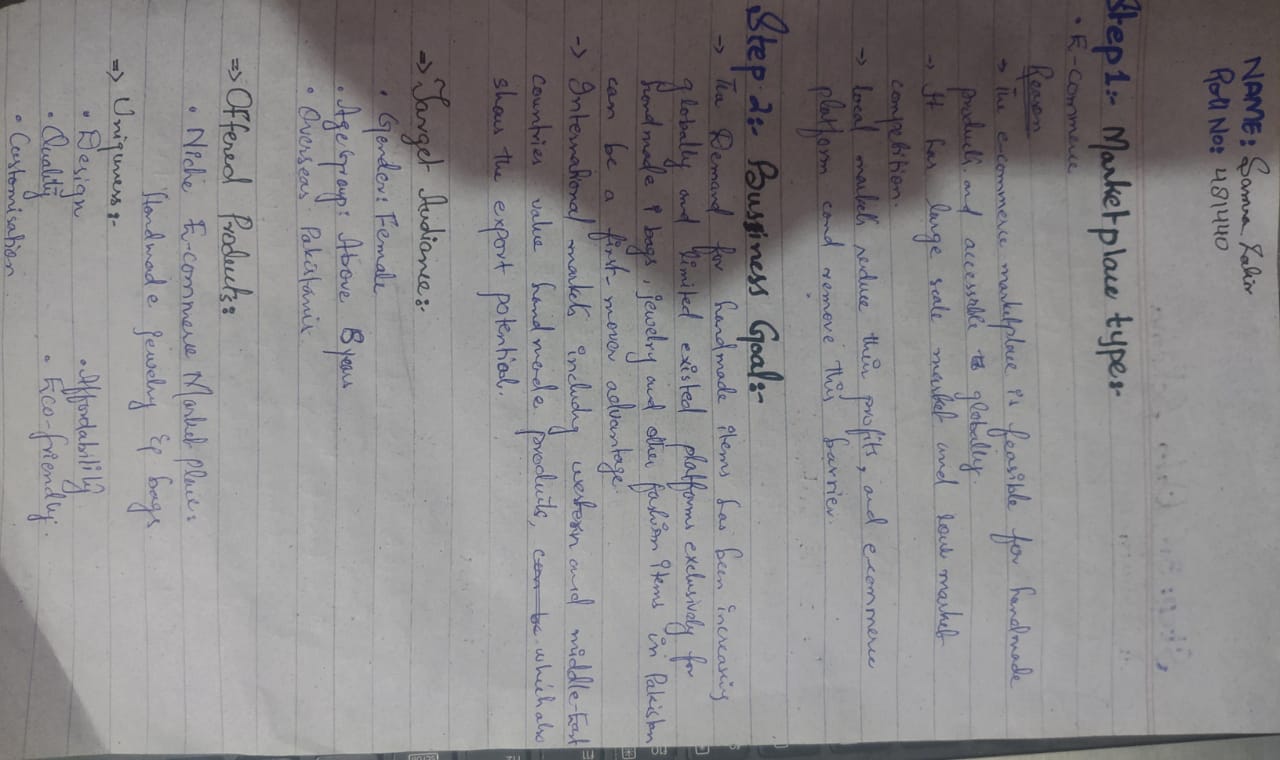 NAME: Samra Zahir
Roll No: 481440
Step 1:- Marketplace types:-
• E-commerce
Reason
→ The e-commerce marketplace is feasible for handmade
products and accessible to globally.
→ It has large scale market and low market
competition.
→ local markets reduce their profits, and ecommerce
platform could remove this barrier.
Step 2:- Bussiness Goal:-
→ The Demand for handmade items has been increasing
globally and limited existed platforms exclusively for
handmade & bags, jewelry and other fashion items in Pakistan
can be a first-mover advantage.
→ International markets including western and middle-East
countries value handmade products, can be which also
shows the export potential.
⇒ Target Audience:
• Gender: Female
• Age group: Above 8 years
• Overseas Pakistanis
⇒ Offered Products:
• Niche E-commerce Market Place:
Handmade jewelry & bags
⇒ Uniqueness:-
• Design • Affordability
• Quality • Eco-friendly.
• Customisation